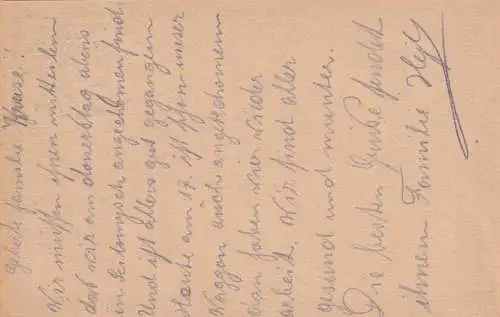 geerte familie Krause!
Wir müssen ihnen mitteilen
das wir am donerstag abens
in angekomen sind.
Und ist alles gut gegangen
Heute am 17. ist schon unser
Waggon auch angekommen
dan haben wier wieder
arbeit. Wir sind aller
gesund und munter.
Die besten Grüße sendet
ihnen Familie